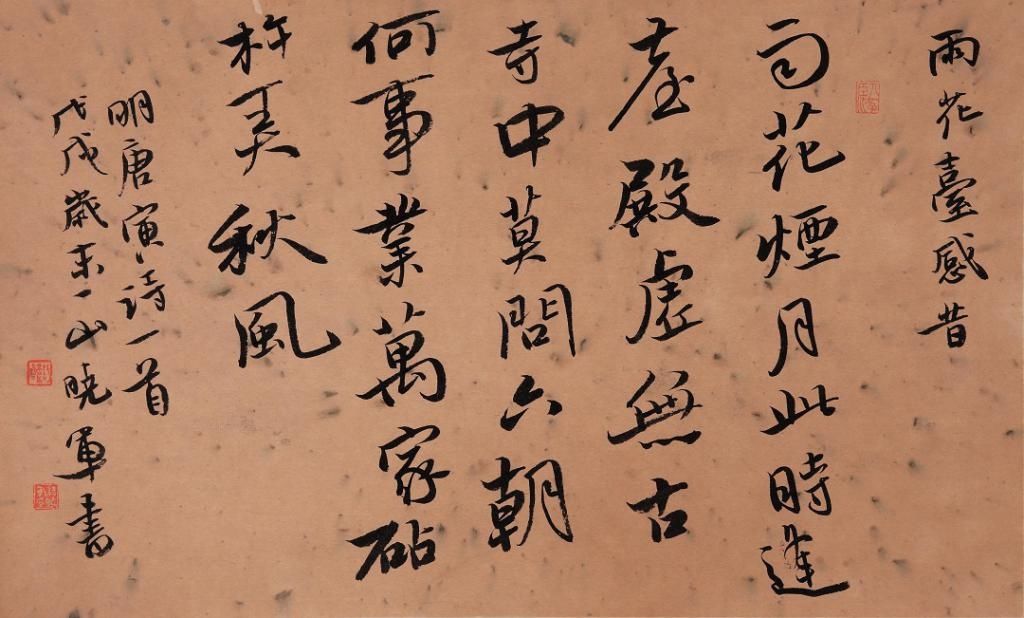 雨花臺感昔
雨花煙月此時逢
臺殿虛無古
寺中莫問六朝
何事業萬家砧
杵秋風
明唐寅詩一首
戊戌歲末一山晓軍書